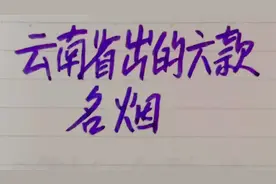 云南省出的六款
名烟